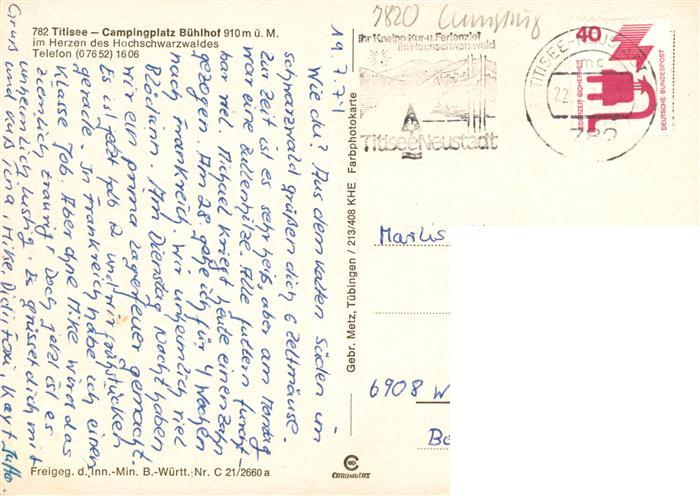 782 Titisee – Campingplatz Bühlhof 910 m ü. M.
im Herzen des Hochschwarzwaldes
Telefon (07652) 1606
19.7.74
Wie du? Aus dem kalten Süden im
schwarzwald grüßen dich 6 zeltmäuse.
zur Zeit ist es sehr heiß, aber am Montag
war eine Bullenhitze. Alle futtern furcht-
bar viel. Michael kriegt heute einen Zahn
gezogen. Am 28 gehe ich für 4 Wochen
nach Frankreich. Wir unheimlich viel
Blödsinn. Am Dienstag Nacht haben
wir ein prima Lagerfeuer gemacht.
Es ist jetzt halb 2 und wir frühstücken
gerade. In Frankreich habe ich einen
Klasse Job. Aber ohne Mike wird das
ziemlich traurig. Doch jetzt ist es
unheimlich lustig. Es grüsset dich mit
Gruss und Kuß Mike, Jutta.
Freigeg. d. Inn.-Min. B.-Württ. Nr. C 21/2660 a
Gebr. Metz, Tübingen / 213/408 KHE Farbphotokarte
CHROMOLUX
7820
Ihr Kneipp-Kur-u. Ferienziel
im Hochschwarzwald
Titisee Neustadt
TITISEE-NEUSTADT
mc
22.
782
40
JEDERZEIT SICHERHEIT
DEUTSCHE BUNDESPOST
Marlis
6908 W